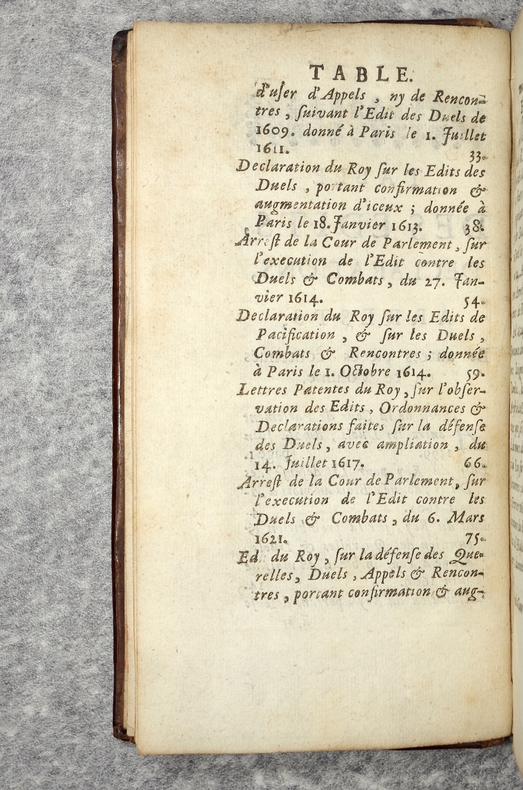 TABLE.
d'uſer d'Appels , ny de Rencon-
tres , ſuivant l'Edit des Duels de
1609. donné à Paris le 1. Juillet
1611. 33.
Declaration du Roy ſur les Edits des
Duels , portant confirmation &
augmentation d'iceux ; donnée à
Paris le 18. Janvier 1613. 38.
Arreſt de la Cour de Parlement , ſur
l'execution de l'Edit contre les
Duels & Combats , du 27. Jan-
vier 1614. 54.
Declaration du Roy ſur les Edits de
Pacification , & ſur les Duels ,
Combats & Rencontres ; donnée
à Paris le 1. Octobre 1614. 59.
Lettres Patentes du Roy , ſur l'obſer-
vation des Edits , Ordonnances &
Declarations faites ſur la défenſe
des Duels , avec ampliation , du
14. Juillet 1617. 66.
Arreſt de la Cour de Parlement , ſur
l'execution de l'Edit contre les
Duels & Combats , du 6. Mars
1621. 75.
Ed du Roy , ſur la défenſe des Que-
relles , Duels , Appels & Rencon-
tres , portant confirmation & aug-